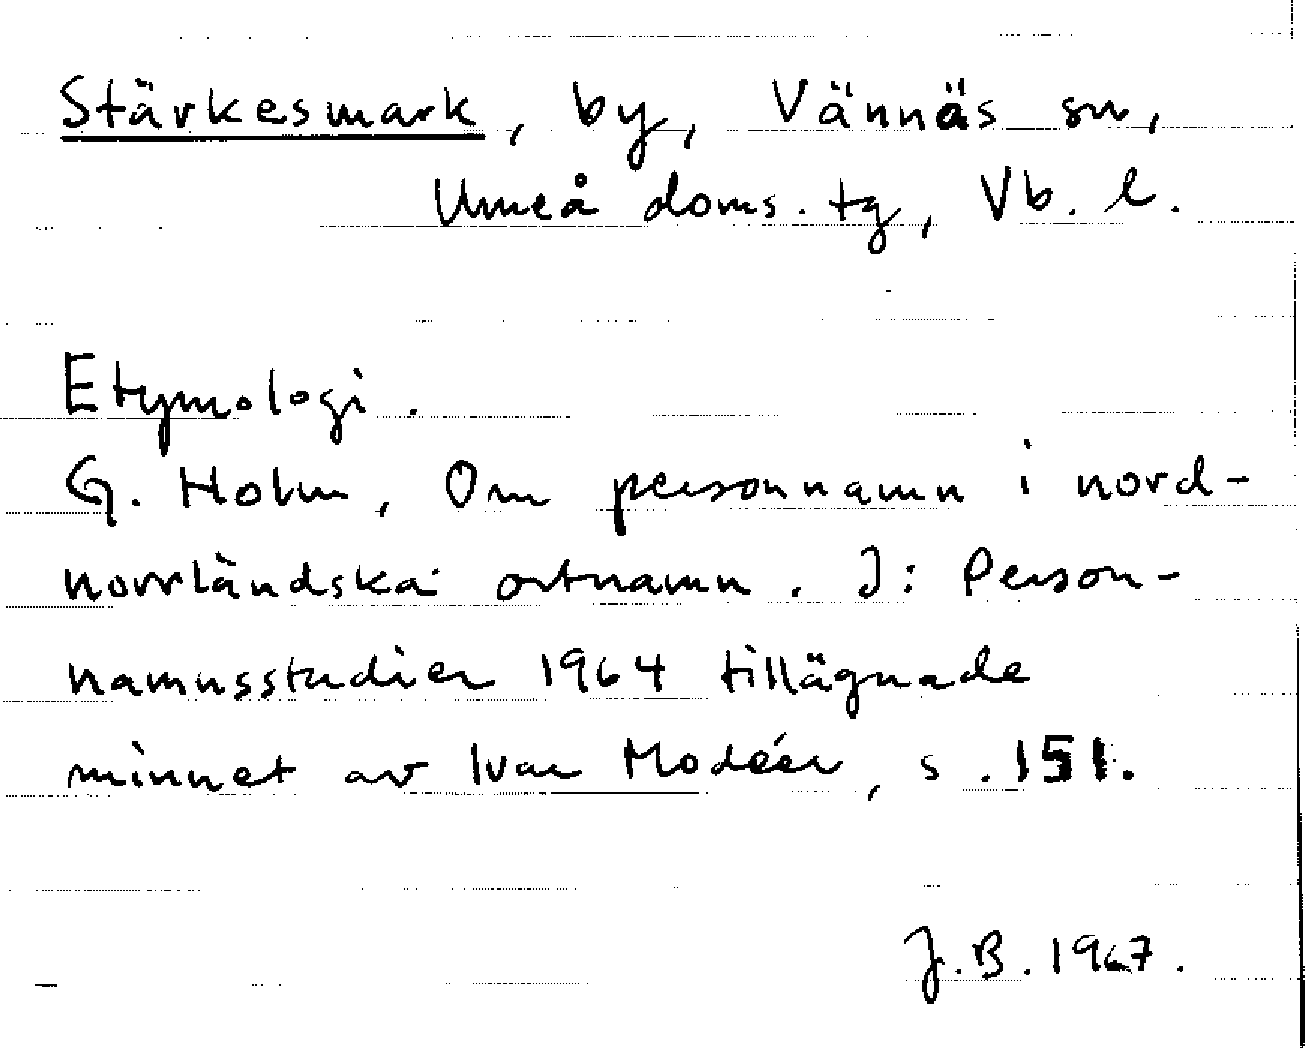 Stärkesmark, by, Vännäs sn,
Umeå doms. tg, Vb. l.
Etymologi.
G. Holm, Om personnamn i nord-
norrländska ortnamn. I: Person-
namnsstudier 1964 tillägnade
minnet av Ivar Modéer, s. 151.
J.B. 1967.